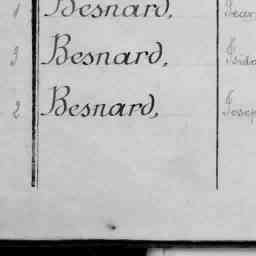 1 Besnard,
3 Besnard, Isido
2 Besnard, Josep